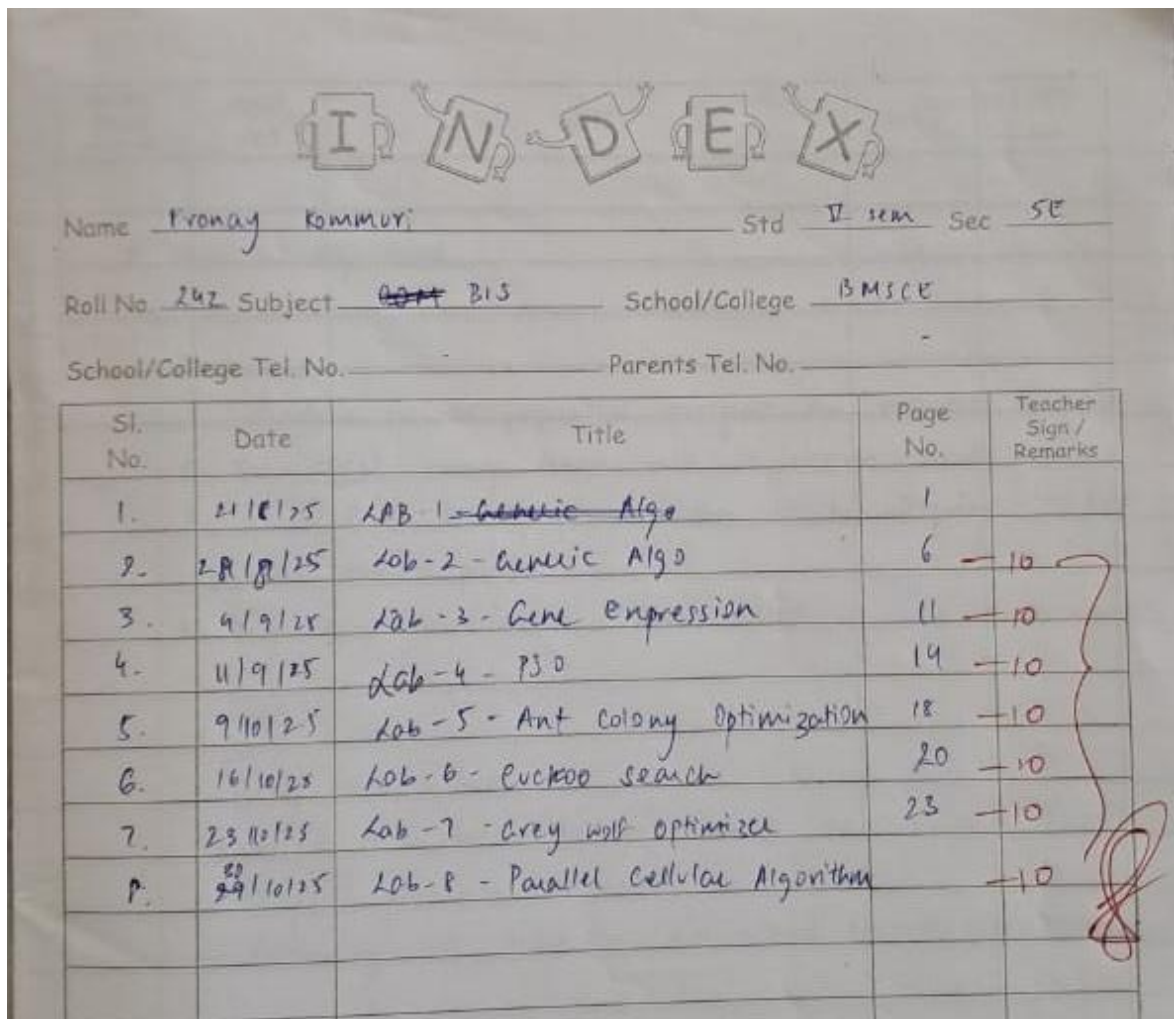 INDEX
Name Pronay Kommuri Std V sem Sec 5E
Roll No. 242 Subject BIS School/College BMSCE
School/College Tel. No. Parents Tel. No. -
Sl. No. Date Title Page No. Teacher Sign / Remarks
1. 21/8/25 LAB 1 - Genetic Algo 1
2. 28/8/25 Lab-2 - Genetic Algo 6 - 10
3. 4/9/25 Lab-3 - Gene Expression 11 - 10
4. 11/9/25 Lab-4 - PSO 14 - 10
5. 9/10/25 Lab-5 - Ant Colony Optimization 18 - 10
6. 16/10/25 Lab-6 - Cuckoo Search 20 - 10
7. 23/10/25 Lab-7 - Grey wolf optimizer 23 - 10
8. /10/25 Lab-8 - Parallel Cellular Algorithm - 10